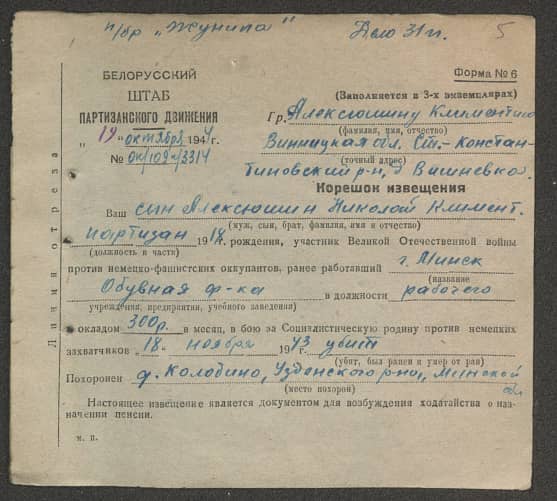 п/бр „Жунина" Дело 31 п. 5
БЕЛОРУССКИЙ
ШТАБ
ПАРТИЗАНСКОГО ДВИЖЕНИЯ
„19" октября 1944 г.
№ ок/109-/3314
Форма № 6
(Заполняется в 3-х экземплярах)
Гр. Алексюшину Климентию
(фамилия, имя, отчество)
Винницкая обл. Ст.-Констан-
(точный адрес)
тиновский р-н, д Вишневка.
Корешок извещения
Ваш сын Алексюшин Николай Климент.
(муж, сын, брат, фамилия, имя и отчество)
партизан 1918 г. рождения, участник Великой Отечественной войны
(должность и часть)
против немецко-фашистских оккупантов, ранее работавший г. Минск
(название
Обувная ф-ка в должности рабочего
учреждения, предприятия, учебного заведения)
с окладом 300р. в месяц, в бою за Социалистическую родину против немецких
захватчиков „18" ноября 1943 убит
(убит, был ранен и умер от ран)
Похоронен д. Колодино, Узденского р-на, Минской обл
(место похорон)
Настоящее извещение является документом для возбуждения ходатайства о наз-
начении пенсии.
м. п.
Линия отреза